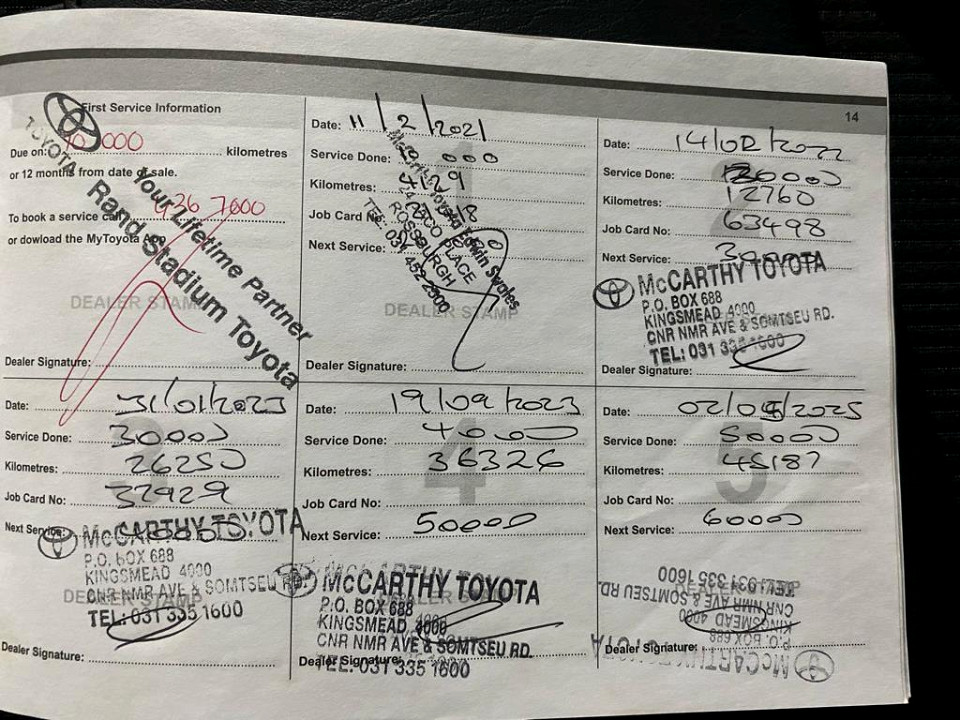 14
First Service Information
Due on: 10 000 kilometres
or 12 months from date of sale.
To book a service call 436 7000
or dowload the MyToyota App
DEALER STAMP
TOYOTA
Your Lifetime Partner
Rand Stadium Toyota
Dealer Signature:
1
Date: 11/2/2021
Service Done: 10 000
Kilometres: 4129
Job Card No:
Next Service:
McCarthy Toyota Edwin Swales
PLACE
ROSSBURGH
TEL: 031 452 2500
DEALER STAMP
Dealer Signature:
2
Date: 14/02/2022
Service Done: 20000
Kilometres: 12760
Job Card No: 63498
Next Service: 30000
McCARTHY TOYOTA
P.O. BOX 688
KINGSMEAD 4000
CNR NMR AVE & SOMTSEU RD.
TEL: 031 335 1600
Dealer Signature:
Date: 31/01/2023
Service Done: 30000
Kilometres: 26250
Job Card No: 37929
Next Service:
McCARTHY TOYOTA
P.O. BOX 688
KINGSMEAD 4000
CNR NMR AVE & SOMTSEU RD
DEALER STAMP
TEL: 031 335 1600
Dealer Signature:
4
Date: 19/09/2023
Service Done: 40000
Kilometres: 36326
Job Card No:
Next Service: 50000
McCARTHY TOYOTA
P.O. BOX 688
DEALER STAMP
KINGSMEAD 4000
CNR NMR AVE & SOMTSEU RD.
Dealer Signature:
TEL: 031 335 1600
5
Date: 02/05/2025
Service Done: 50000
Kilometres: 45187
Job Card No:
Next Service: 60000
DEALER STAMP
McCARTHY TOYOTA
P.O. BOX 688
KINGSMEAD 4000
CNR NMR AVE & SOMTSEU RD
TEL: 031 335 1600
Dealer Signature: